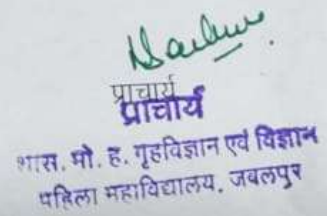 प्राचार्य
प्राचार्य
शास. मो. ह. गृहविज्ञान एवं विज्ञान
महिला महाविद्यालय, जबलपुर